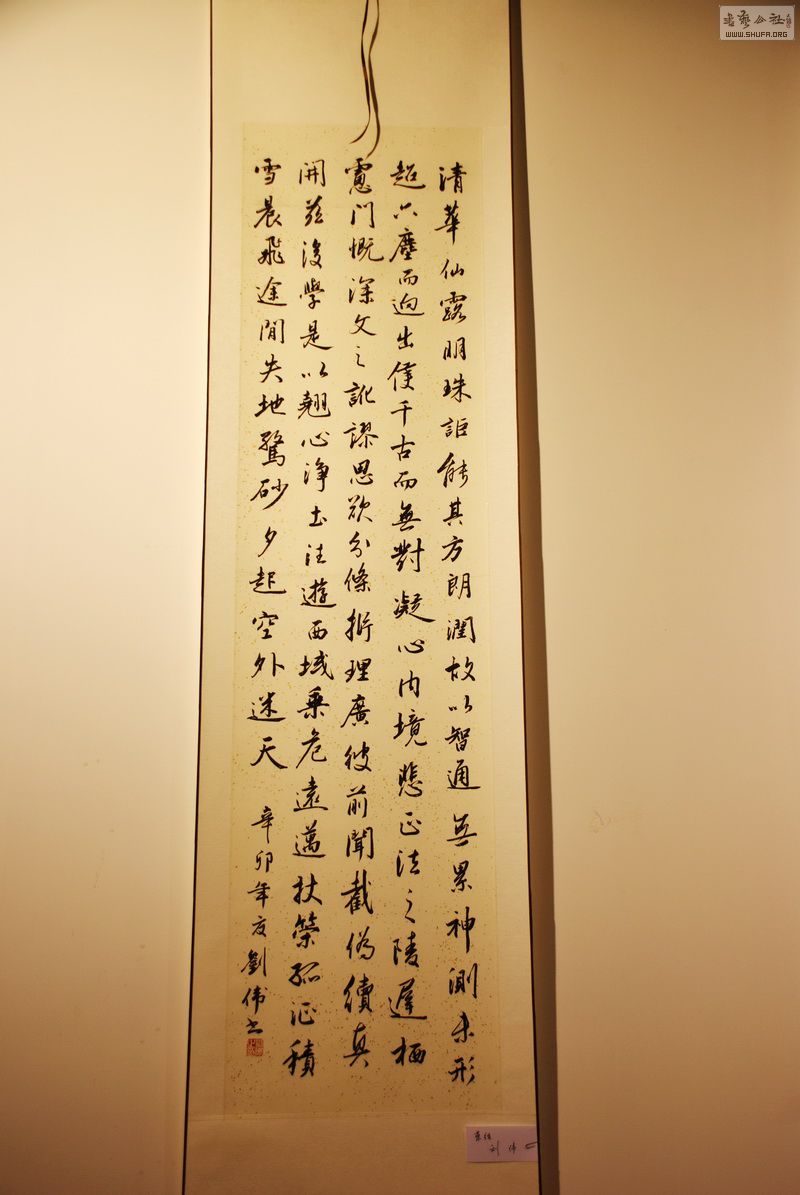 清華仙露明珠詎能其方朗潤故以智通無累神測未形
超六塵而迥出隻千古而無對凝心內境悲正法之陵遲栖
慮門慨深文之訛謬思欲分條析理廣彼前聞截偽續真
開茲後學是以翹心淨土往遊西域乘危遠邁杖策孤征積
雪晨飛途間失地驚砂夕起空外迷天
辛卯年夏劉伟书
刘伟
書藝公社
WWW.SHUFA.ORG